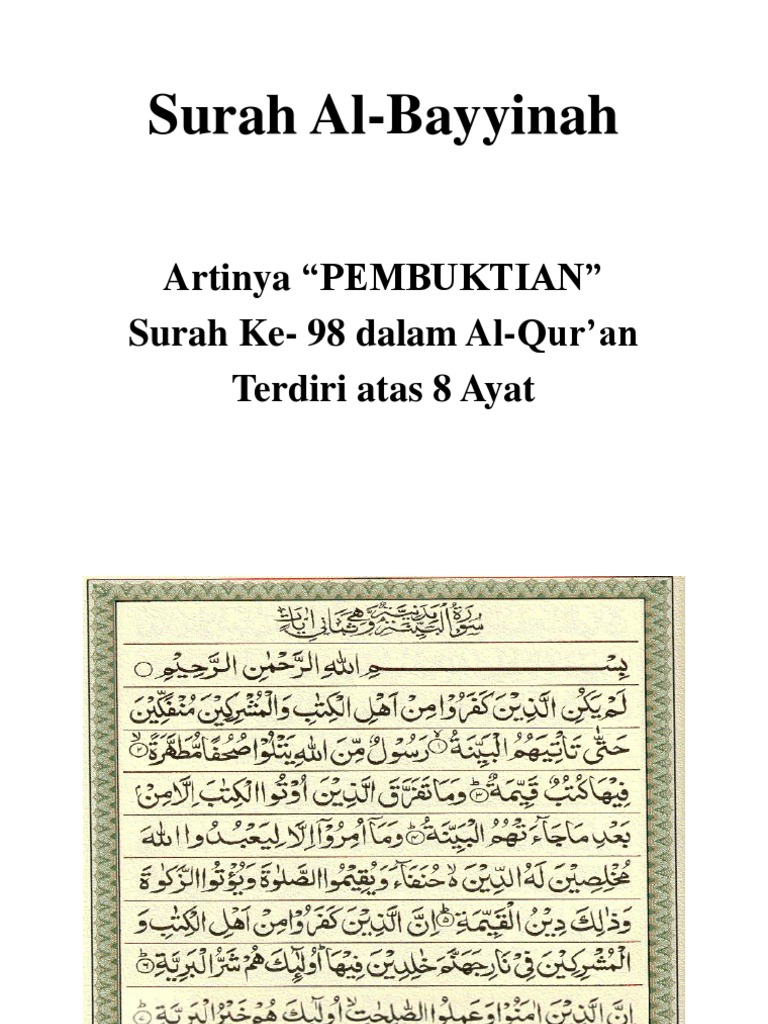 Surah Al-Bayyinah
Artinya “PEMBUKTIAN”
Surah Ke- 98 dalam Al-Qur’an
Terdiri atas 8 Ayat
سُورَةُ الْبَيِّنَةِ مَدَنِيَّةٌ وَهِيَ ثَمَانِي اٰيَاتٍ
بِسْمِ اللهِ الرَّحْمٰنِ الرَّحِيْمِ
لَمْ يَكُنِ الَّذِيْنَ كَفَرُوْا مِنْ اَهْلِ الْكِتٰبِ وَالْمُشْرِكِيْنَ مُنْفَكِّيْنَ
حَتّٰى تَأْتِيَهُمُ الْبَيِّنَةُ ۙ﴿١﴾ رَسُوْلٌ مِّنَ اللهِ يَتْلُوْا صُحُفًا مُّطَهَّرَةً ۙ﴿٢﴾
فِيْهَا كُتُبٌ قَيِّمَةٌ ۗ﴿٣﴾ وَمَا تَفَرَّقَ الَّذِيْنَ اُوْتُوا الْكِتٰبَ اِلَّا مِنْۢ
بَعْدِ مَا جَاۤءَتْهُمُ الْبَيِّنَةُ ۗ﴿٤﴾ وَمَآ اُمِرُوْٓا اِلَّا لِيَعْبُدُوا اللهَ
مُخْلِصِيْنَ لَهُ الدِّيْنَ ەۙ حُنَفَاۤءَ وَيُقِيْمُوا الصَّلٰوةَ وَيُؤْتُوا الزَّكٰوةَ
وَذٰلِكَ دِيْنُ الْقَيِّمَةِ ۗ﴿٥﴾ اِنَّ الَّذِيْنَ كَفَرُوْا مِنْ اَهْلِ الْكِتٰبِ وَ
الْمُشْرِكِيْنَ فِيْ نَارِ جَهَنَّمَ خٰلِدِيْنَ فِيْهَا ۗ اُولٰۤىِٕكَ هُمْ شَرُّ الْبَرِيَّةِ ۗ﴿٦﴾
اِنَّ الَّذِيْنَ اٰمَنُوْا وَعَمِلُوا الصّٰلِحٰتِ ۙ اُولٰۤىِٕكَ هُمْ خَيْرُ الْبَرِيَّةِ ۗ﴿٧﴾